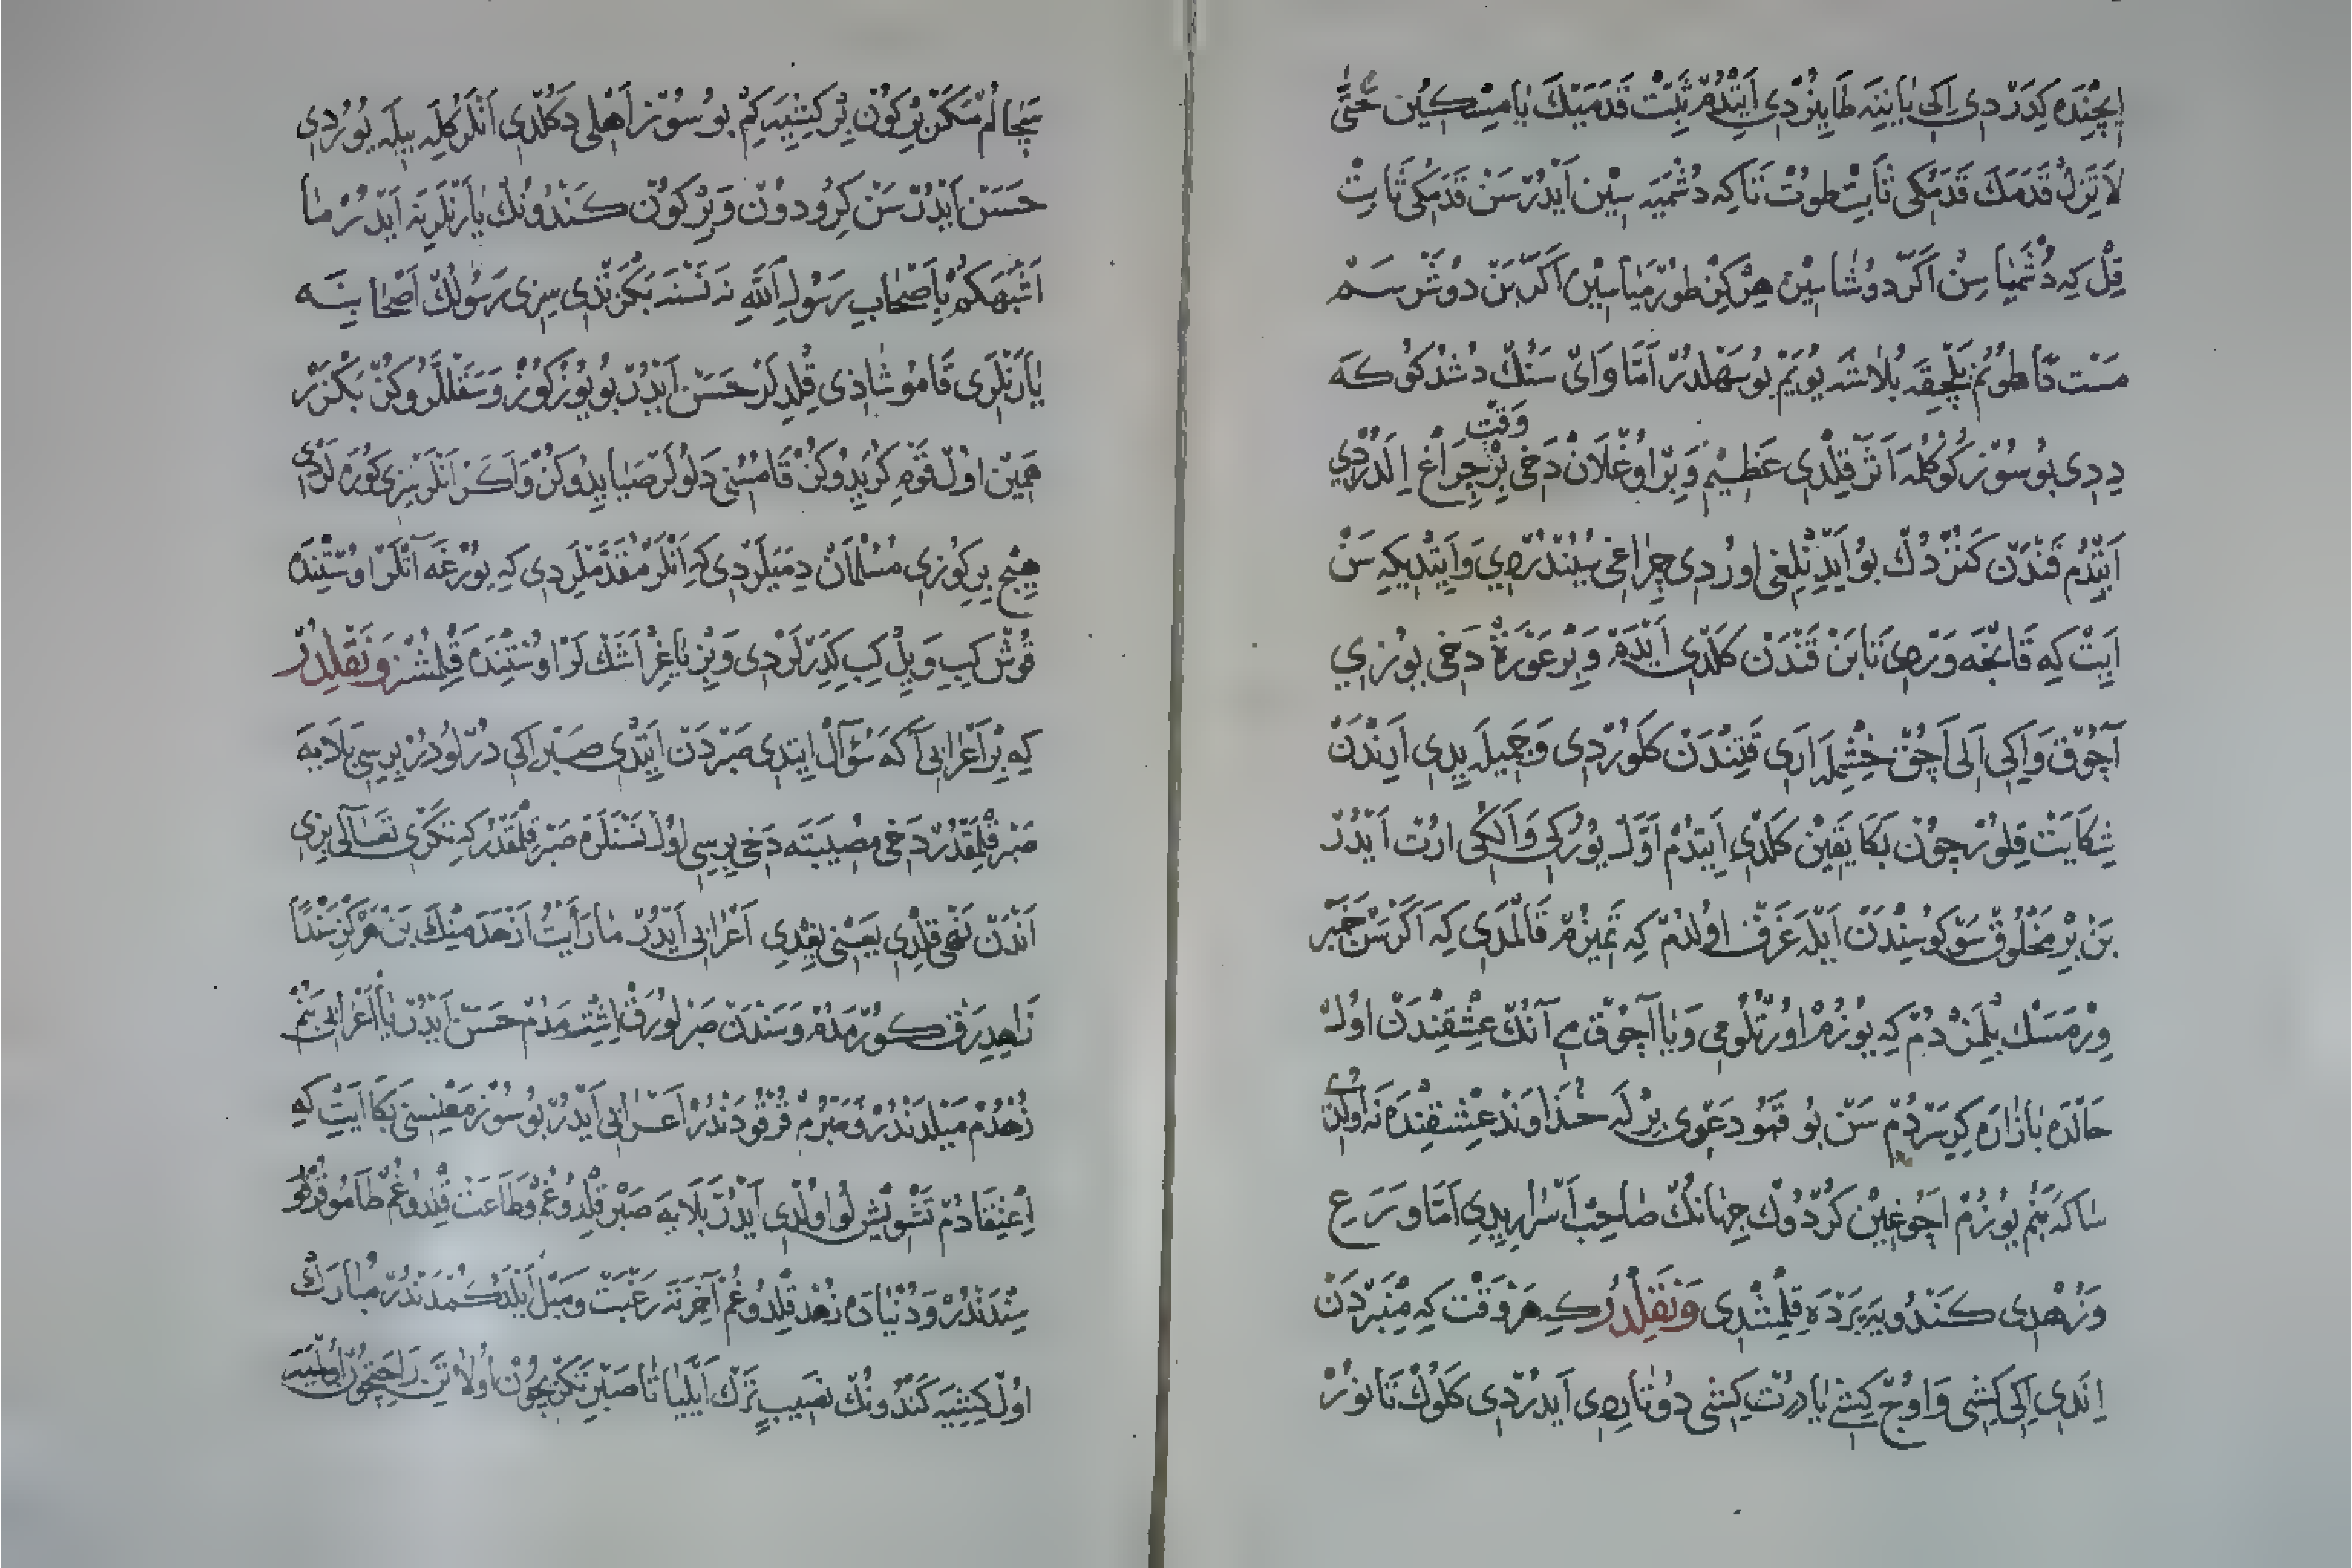 اِيچِنْدَه كِدَرْدِى اِكى يَاننَه طَايِنُرْدِى اَيِتْدُمْ ثَبِّتْ قَدَمَيْكَ يَا مِسْكِين حَتَّى
لَا تَزِلُّ قَدَمَكَ قَدَمُكِى ثَابِتْ طُوتْ تَاكِه دُشْمِيَه سِيْن اَيْدُرْ سَنْ قَدَمِكِى ثَابِتْ
قِلْ كِه دُشْمِيَاسِنْ اَكَرْ دُوشَاسِيْن هِرْكِزْ طُورْمَيَاسِيْن اَكَرْ بَنْ دُوشَرْسَمْ
مَسْت دَاطُوتُمْ بَلْچِقَه بُلَاشَه يُويَمْ بُو سَهْلْدُرْ اَمَّا وَاىْ سَنُكْ دُشْدُكُوكَه
دِدِى بُو سُوزْ كُوكْلُمَه اَثَرْ قِلْدِى عَظِيمْ وَبِرْ اوُغْلَانْ دَخِى بِرْ وَقْت چِرَاغْ اِلَدُرْدِى
اَيِتْدُمْ قَنْدَنْ كَتُرْدُكْ بُو اَيْدِنْلِغِى اوُرْدِى چِرَاغِى سُيُنْدُرْدِى وَاَيِتْدِيكِه سَنْ
اَيِتْ كِه قَانْجَه وَرْدِى تَا بَنْ قَنْدَنْ كَلْدِى اَيْدَمْ وَبِرْ عَوْرَةْ دَخِى يُوزِى
آچُوقْ وَاِكِى اَلِى اَچُقْ خِشْمِلَه اَرِى قَتِنْدَنْ كَلُورْدِى وَجَمِيلَه يِدِى اَرِنْدَنْ
شِكَايَتْ قِلُورْ چُونْ بَكَا يَقِينْ كَلْدِى اَيِتْدُمْ اَوَّلْ يُوزُكِى وَاَلُكِى اورْتْ اَيْدُرْ
بَنْ بِرْ مَخْلُوقْ سَوْكُوسِنْدَنْ اَيْلَه غَرَقْ اوُلْدُمْ كِه تَمِيزُمْ قَالْمَدِى كِه اَكَرْ سَنْ خَبَرْ
وِرْمَسَكْ بِلْمَزْدُمْ كِه يُوزُمْ اوُرْتُلُومِى وَيَا آچُوقْ مِى آنُكْ عِشْقِنْدَنْ اوُلْ
حَالْدَه بَازَارَه كِرِيسَرْدُمْ سَنْ بُو قَمُو دَعْوِى بِرْلَه خُذَاوَنْدْ عِشْقِنْدَه نَه اوُلَدِى
سَاكَه بَنُمْ يُوزُمْ اَچُوغِيْن كُرْدُوكْ جِهَانُكْ صَاحِبْ اَسْرَارِيدِى اَمَّا وَرَعِ
وَزُهْدِى كَنْدُويَه پَرْدَه قِلْمِشْدِى وَنَقْلِدُرْ كِه هَرْ وَقْتْ كِه مِنْبَرْدَنْ
اِنَدِى اِكِى كِشِى وَاوُچْ كِشِى يَا دُرْتْ كِشِى دُوتَارِدِى اَيْدُرْدِى كَلُوكْ تَا نُورْ
سَچَالُمْ مَكَرْ بِرْكُونْ بِرْ كِشِيَه كِمْ بُو سُوزْ اَهْلِى دَكُلْدِى اَنْلَرْكَلَه بِيلَه يُورُدِى
حَسَنْ اَيْدُرْ سَنْ كِرُو دُونْ وَبِرْكُونْ كَنْدُونُكْ يَارَنْلَرِنَه اَيْدُرْ مَا
اَشْبَهَكُمْ بِاَصْحَابِ رَسُولِ اللّٰهِ نَه نَسْنَه بَكْزَتْدِى سِزِى رَسُولُكْ اَصْحَابِنَه
يَارَنْلَرِى قَامُو شَاذِى قِلْدِلَرْ حَسَنْ اَيْدُرْ بُو يُوزْ كُوزْ وَسَقَلْلَرُوكُزْ بَكْزَرْ
هَمِيْن اوُلْ قَوْمِ كُرَيْدُوكُزْ قَامُسُنِى دَلُولَرْ صَيَايْدُوكُزْ وَاَكَرْ اَنْلَرْ سِزِى كُورَه لَرْدِى
هِيچْ بِرِكُوزِى مُسُلْمَانْ دِمَيَلَرْدِى كِه اَنْلَرْ مُقَدَّمْلَرْدِى كِه يُورْغَه آتْلَرْ اوُسْتِنْدَه
قُوشْ كِبِ وَيِلْ كِبِ كِدَرْلَرْدِى وَبِزْ يَاغِرْ اَشَكْ لَرْ اوُسْتِنْدَه قَلْمِشُزْ وَنَقْلِدُرْ
كِه بِرْ اَعْرَابِى آكَه سُؤَالْ اِيتْدِى صَبْرْدَنْ اَيِتْدِى صَبْرْ اِكِى دُرْلُودُرْ بِرِيسِى بَلَايَه
صَبْرْ قِلْمَقْدُرْ دَخِى مُصِيبَتَه دَخِى بِرِيسِى اوُلْ نَسْنَلَرَه صَبْرْ قِلْمَقْدُرْ كِه تَكْرِى تَعَالَى بِزِى
اَنْدَنْ نَهْىْ قِلْدِى يَعْنِى يِغْدِى اَعْرَابِى اَيْدُرْ مَا رَأَيْتُ اَزْهَدَ مِنْكَ بَنْ هَرْكِزْ سَنْدَنْ
زَاهِدِرَقْ كُورْمَدُمْ وَسَنْدَنْ صَبْرْلُورَقْ اِشِتْمَدُمْ حَسَنْ اَيْدُرْ يَا اَعْرَابِى بَنُمْ
زُهْدُمْ مَيْلْدَنْدُرْ وَصَبْرُمْ قُرْقُودَنْدُرْ اَعْرَابِى اَيْدُرْ بُو سُوزْ مَعْنِسِنِى بَكَا اَيِتْ كِه
اِعْتِقَادُمْ تَشْوِيشْ لُو اوُلْدِى اَيْدُرْ بَلَايَه صَبْرْ قِلْدُوغُمْ وَطَاعَتْ قِلْدُوغُمْ طَامُو قُرْقُو
سِنْدَنْدُرْ وَدُنْيَادَه زُهْدْ قِلْدُوغُمْ آخِرَتَه رَغْبَتْ وَمَيْلْ اَيْلَدُكُمْدَنْدُرْ مُبَارَكْ
اوُلْ كِشِيَه كَنْدُونُكْ نَصِيبِ تَرْكْ اَيْلِيَا تَا صَبْرِ تَكْرِيچُونْ اوُلَا تَنْ رَاحَتِيچُونْ اوُلْمَيَه